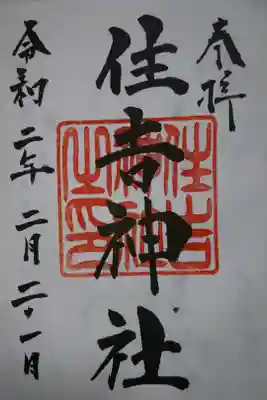 奉拝
住吉神社
住吉神社之印
令和二年二月二十一日